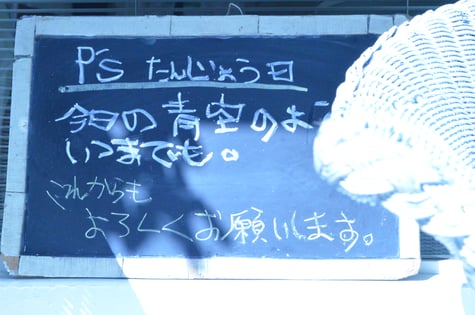 P's たんじょう日
今日の青空のよう
いつまでも。
これからも
よろしくお願いします。